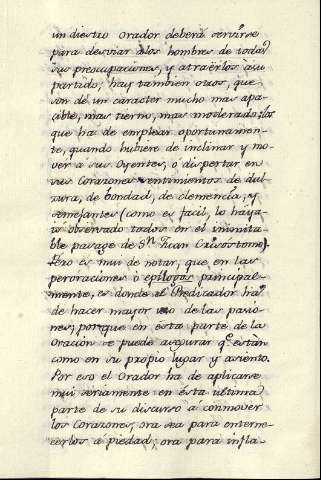 un diestro orador deberá servirse
para desviar a los hombres de todas
sus preocupaciones, y atraèrlos à su
partido, hay tambien otros, que
son de un caracter mucho mas apa-
cible, mas tierno, mas moderado, los
que ha de emplear oportunamen-
te, quando hubiere de inclinar y mo-
ver a sus Oyentes, ò dispertar en
sus Corazones sentimientos de dul-
zura, de bondad, de clemencia, y
semejantes (como es facil, lo haya-
is observado todos en el inimita-
ble pasage de Sn. Juan Crisostomo).
Pero es mui de notar, que en las
peroraciones ò epilogos principal-
mente, es donde el Predicador ha
de hacer mayor uso de las pasio-
nes, porque en esta parte de la
Oracion se puede asegurar qe. estàn
como en su propio lugar y asiento.
Por eso el Orador ha de aplicarse
mui seriamente en èsta ultima
parte de su discurso à conmover
los Corazones, ora sea para enterne-
cerlos à piedad, ora para infla-